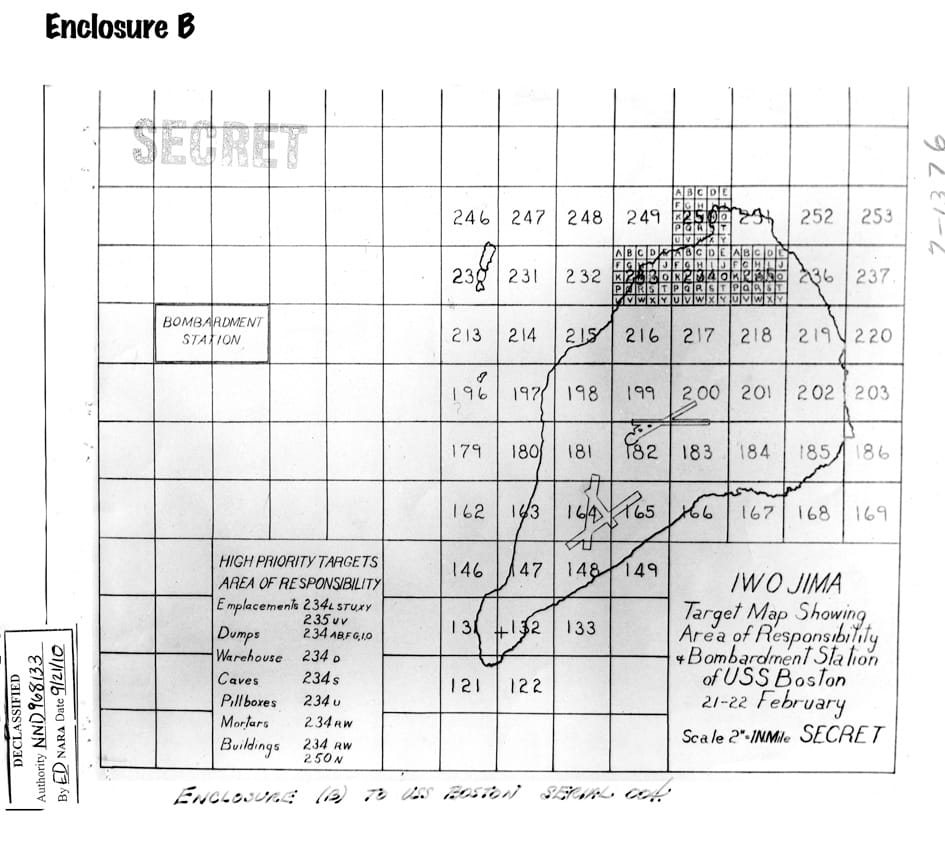 Enclosure B
SECRET
7-1376
A B C D E
F G H
246 247 248 249 250 251 252 253
K O
P Q R S T
U V W X Y
A B C D E B C D E A B C D E
F G J F G H I J F G H I J
230 231 232 233 234 235 236 237
P Q R S T P Q R S T P Q R S T
U V W X Y U V W X Y U V W X Y
BOMBARDMENT
STATION
213 214 215 216 217 218 219 220
196 197 198 199 200 201 202 203
179 180 181 182 183 184 185 186
162 163 164 165 166 167 168 169
146 147 148 149
131 132 133
121 122
HIGH PRIORITY TARGETS
AREA OF RESPONSIBILITY
Emplacements 234L STUXY
235 UV
Dumps 234 ABFG,I,O
Warehouse 234 O
Caves 234 S
Pillboxes 234 U
Mortars 234 RW
Buildings 234 RW
250 N
IWO JIMA
Target Map Showing
Area of Responsibility
+ Bombardment Station
of USS Boston
21-22 February
Scale 2"=1NMile SECRET
DECLASSIFIED
Authority NND968133
By ED NARA Date 9/21/10
ENCLOSURE (B) TO USS BOSTON SERIAL 004